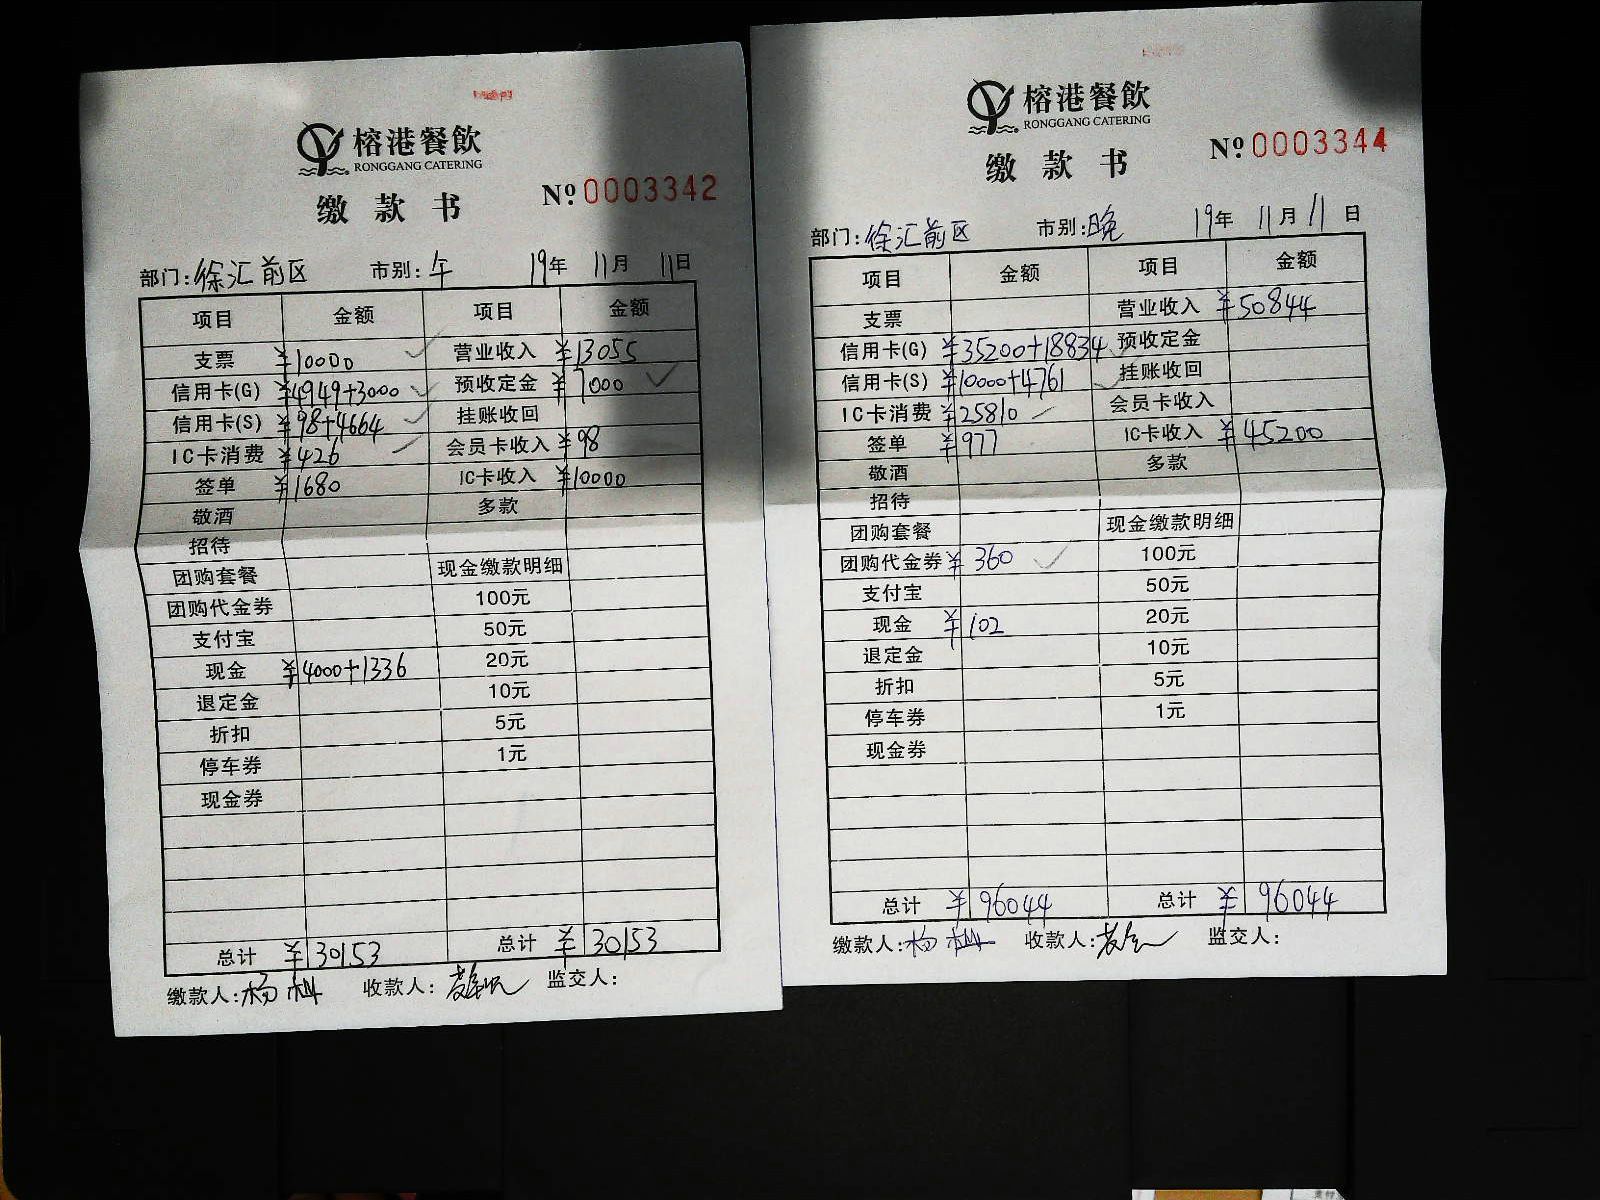 榕港餐飲
RONGGANG CATERING
缴款书
№ 0003342
部门:徐汇前区 市别:午 19年 11月 11日
项目 金额 项目 金额
支票 ¥10000 营业收入 ¥13055
信用卡(G) ¥4949+3000 预收定金 ¥7000
信用卡(S) ¥98+4664 挂账收回
IC卡消费 ¥426 会员卡收入 ¥98
签单 ¥1680 IC卡收入 ¥10000
敬酒 多款
招待
团购套餐 现金缴款明细
团购代金券 100元
支付宝 50元
现金 ¥4000+1336 20元
退定金 10元
折扣 5元
停车券 1元
现金券
总计 ¥30153 总计 ¥30153
缴款人:杨 收款人: 监交人:
榕港餐飲
RONGGANG CATERING
缴款书
№ 0003344
部门:徐汇前区 市别:晚 19年 11月 11日
项目 金额 项目 金额
支票 营业收入 ¥50844
信用卡(G) ¥35200+18834 预收定金
信用卡(S) ¥10000+4761 挂账收回
IC卡消费 ¥25810 会员卡收入
签单 ¥977 IC卡收入 ¥45200
敬酒 多款
招待
团购套餐 现金缴款明细
团购代金券 ¥360 100元
支付宝 50元
现金 ¥102 20元
退定金 10元
折扣 5元
停车券 1元
现金券
总计 ¥96044 总计 ¥96044
缴款人:杨 收款人: 监交人: